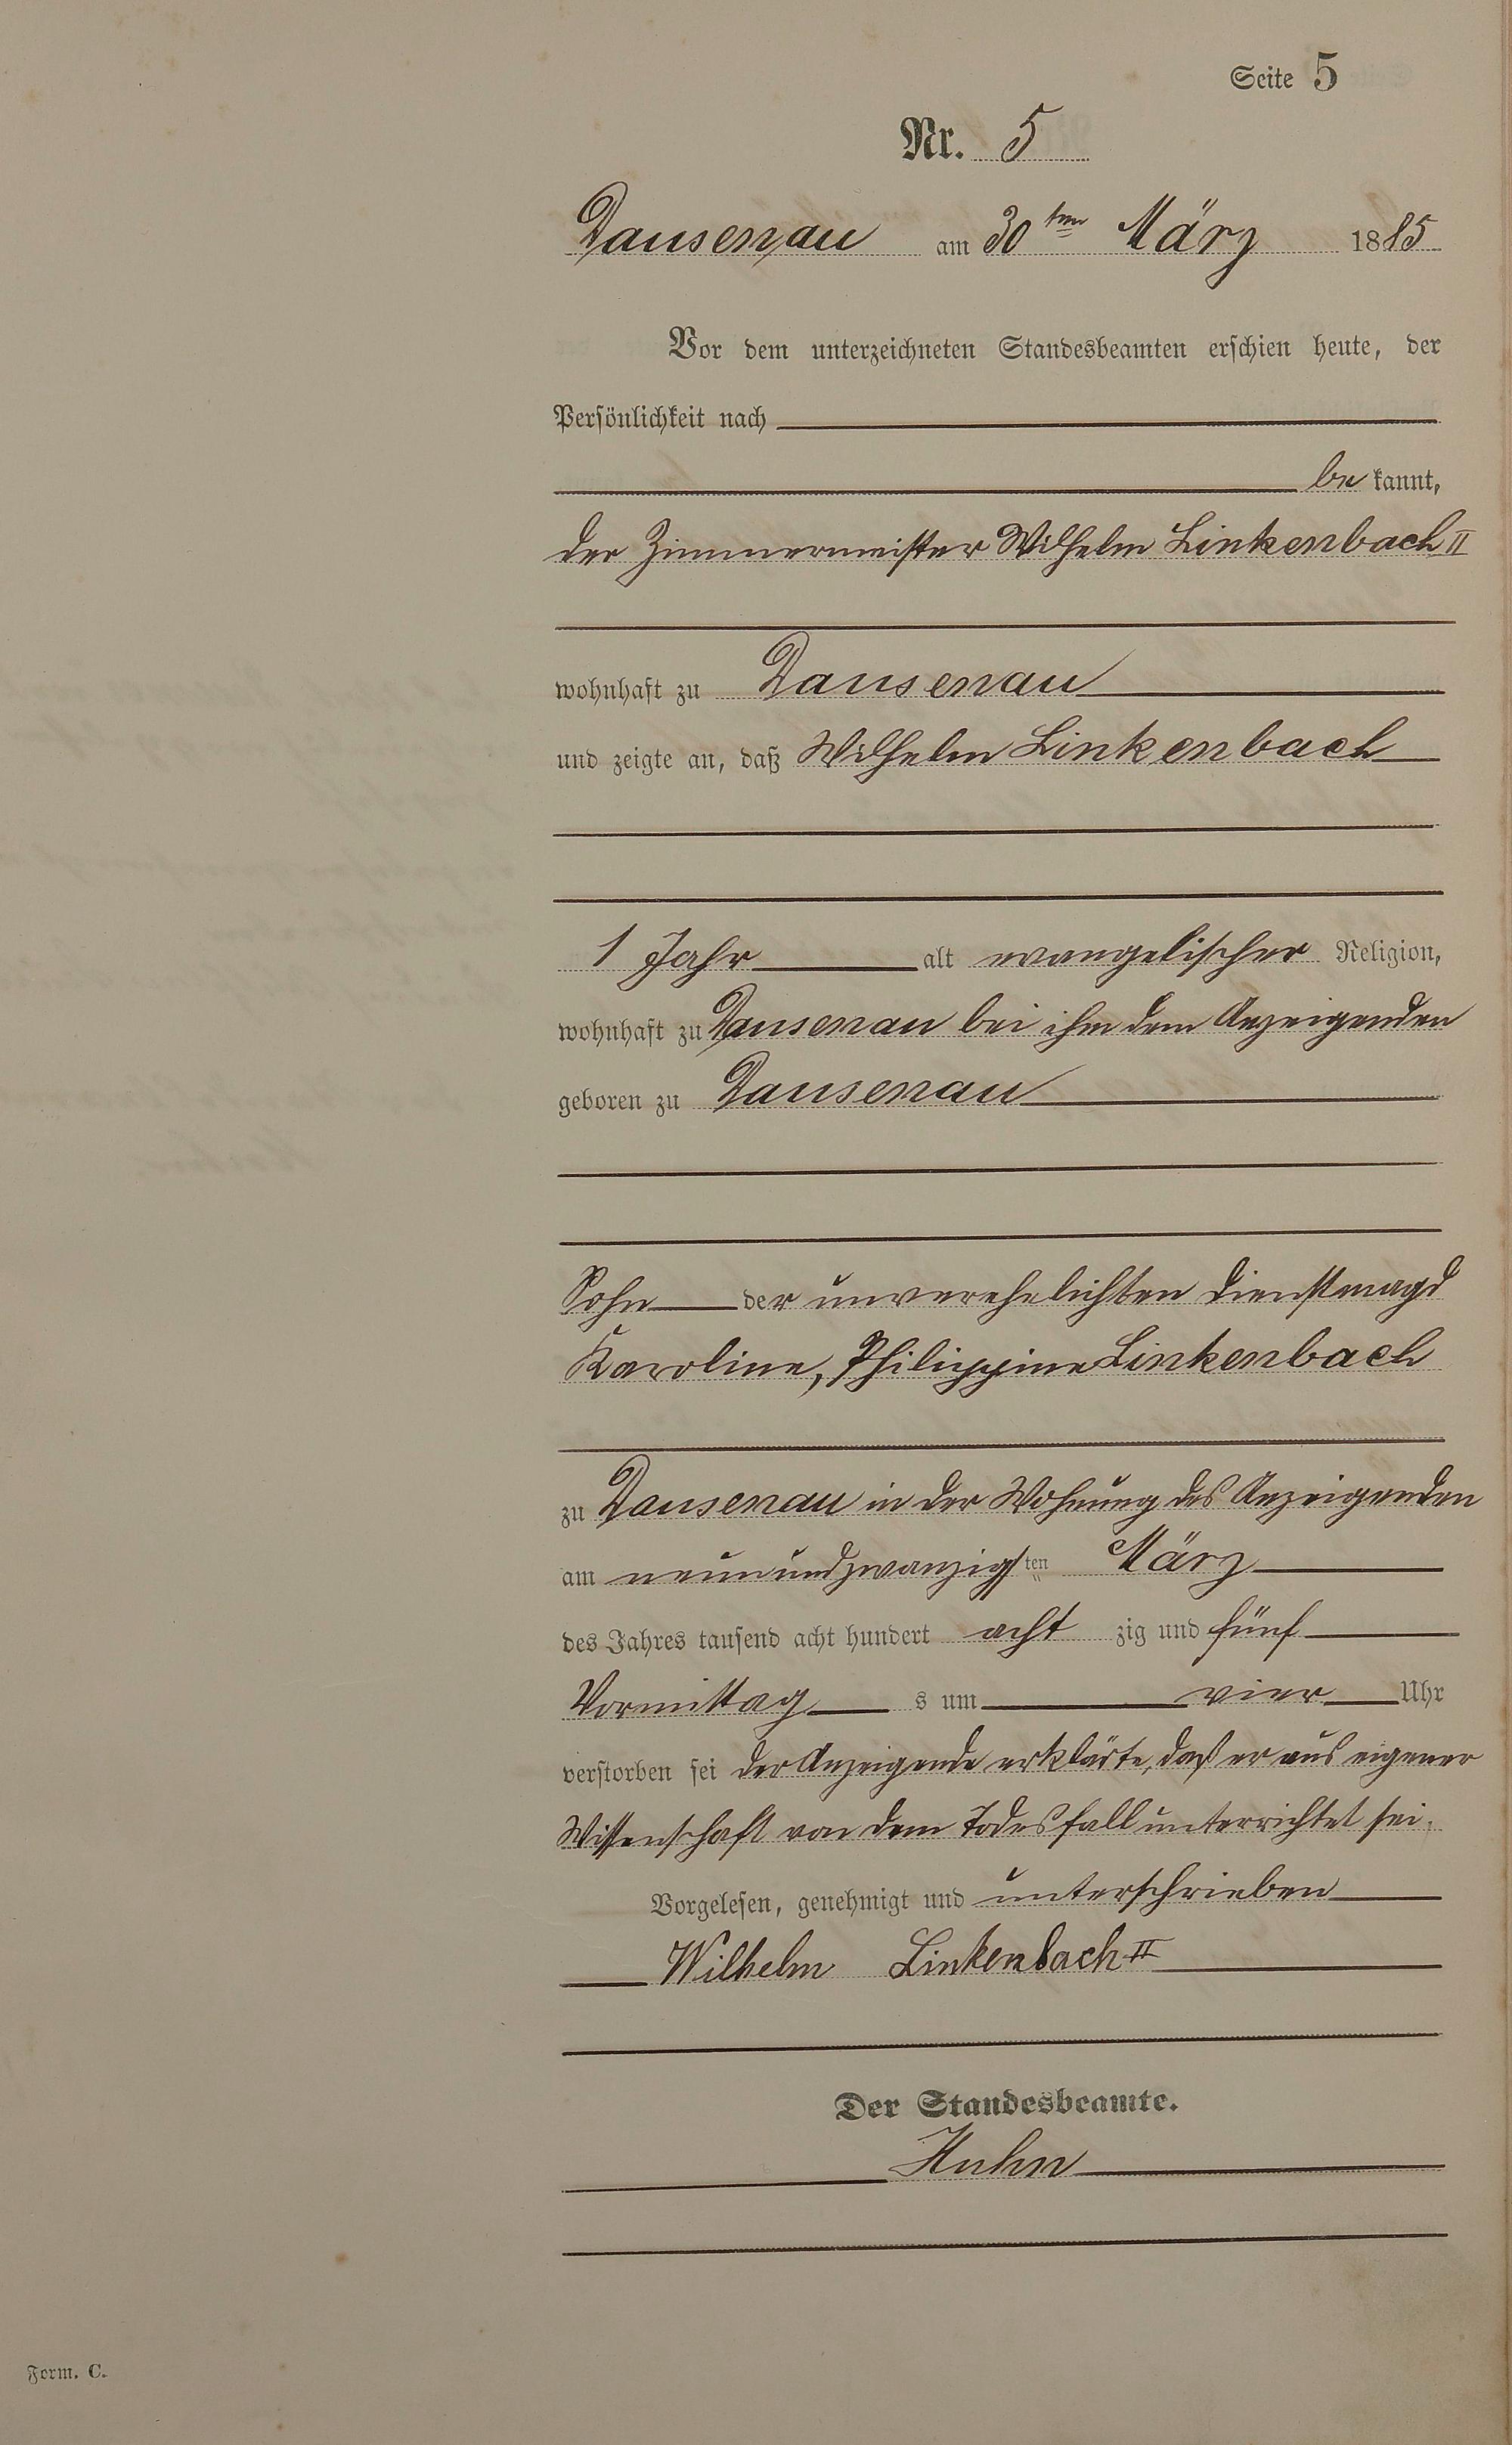 Seite 5
Nr. 5
Dausenau am 30ten März 1885
Vor dem unterzeichneten Standesbeamten erschien heute, der
Persönlichkeit nach
be kannt,
der Zimmermeister Wilhelm Linkenbach II
wohnhaft zu Dausenau
und zeigte an, daß Wilhelm Linkenbach
1 Jahr alt evangelischer Religion,
wohnhaft zu Dausenau bei ihm dem Anzeigenden
geboren zu Dausenau
Sohn der unverehelichten Dienstmagd
Karoline, Philippine Linkenbach
zu Dausenau in der Wohnung des Anzeigenden
am neunundzwanzigsten März
des Jahres tausend acht hundert acht zig und fünf
Vormittag s um vier Uhr
verstorben sei der Anzeigende erklärte, daß er aus eigener
Wissenschaft von dem Todesfall unterrichtet sei.
Vorgelesen, genehmigt und unterschrieben
Wilhelm Linkenbach II
Der Standesbeamte.
Huhn
Form. C.